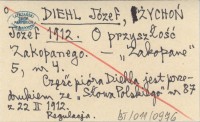 DIEHL Józef, ŻYCHOŃ
Józef 1912. O przyszłość
Zakopanego. — „Zakopane”
5, nr 4.
Część pióra Diehla jest prze-
drukiem ze „Słowa Polskiego” nr 87
z 22 II 1912.
Regulacja.